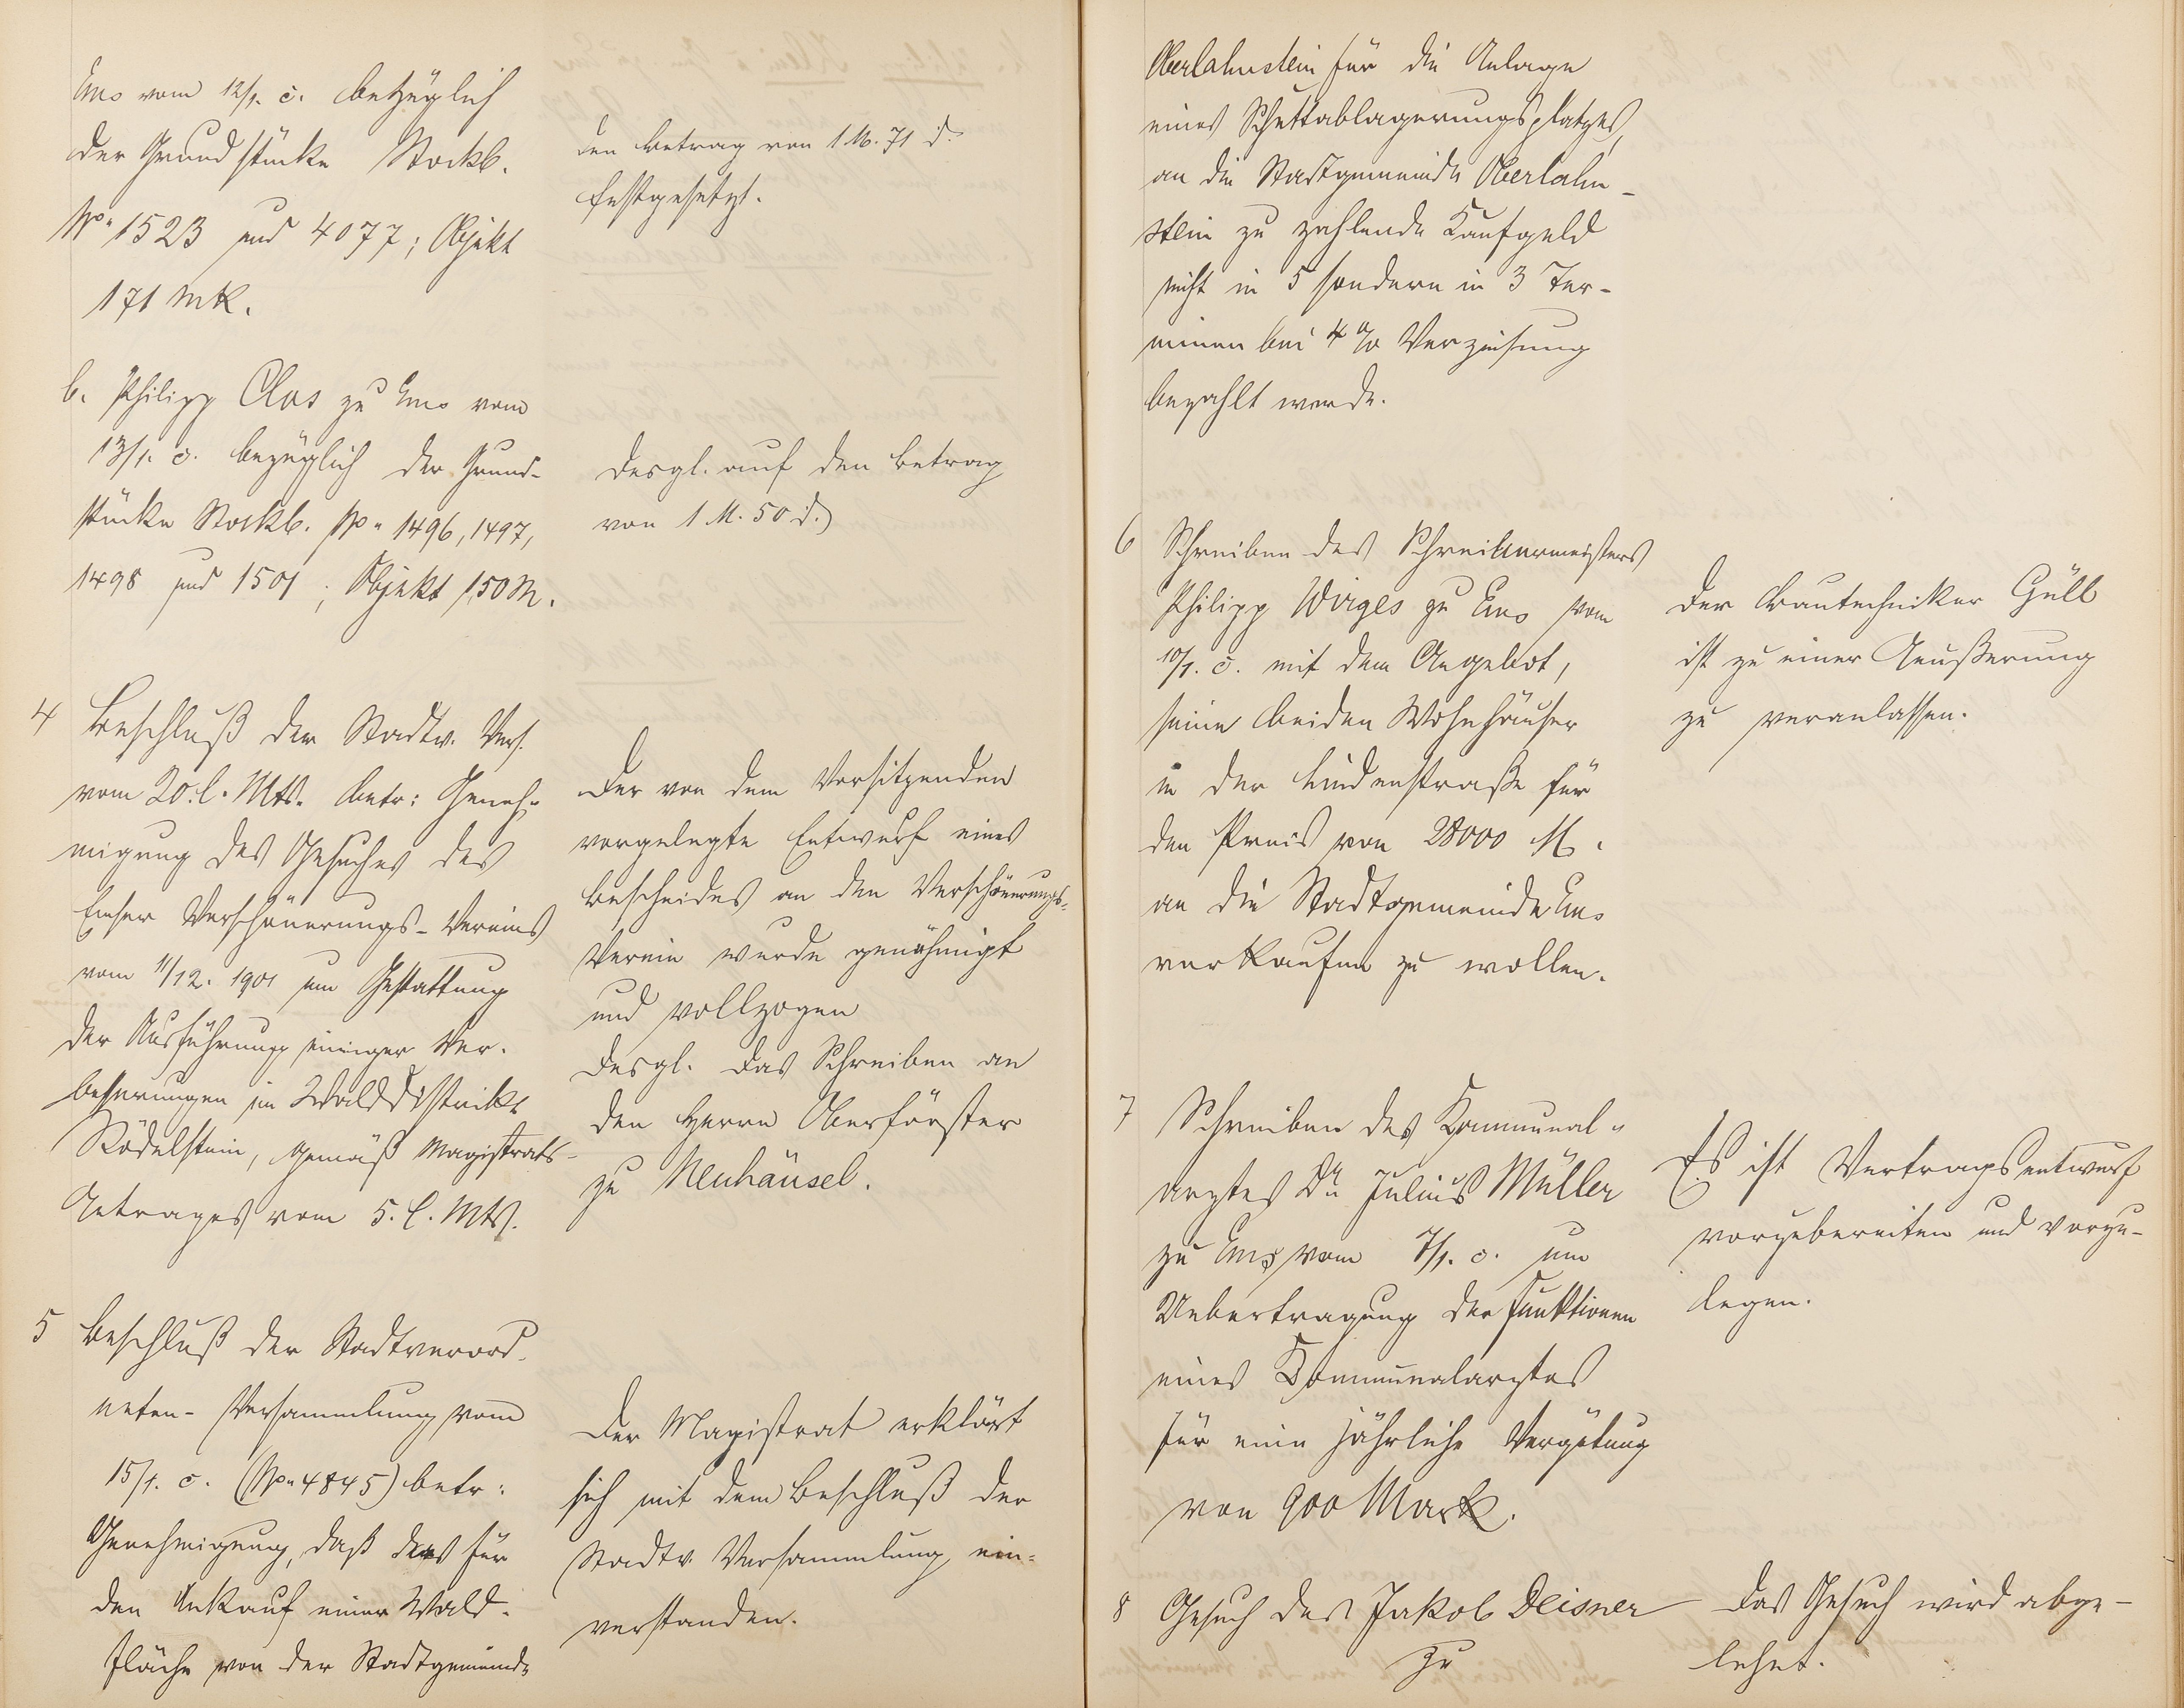 Ems vom 12/1. c. bezüglich
der Grundstücke Stockb.
No. 1523 und 4077; Objekt
171 Mk.
den Betrag von 1 M. 71 d.
festgesetzt.
b. Philipp Clos zu Ems vom
13/1. c. bezüglich der Grund-
stücke Stockb. No. 1496, 1497,
1498 und 1501; Objekt 150 M.
Desgl. auf den Betrag
von 1 M. 50 d.
4 Beschluß der Stadtv. Vers.
vom 20. l. Mts. betr: Geneh-
migung des Gesuches des
Emser Verschönerungs-Vereins
vom 11/12. 1901 um Gestattung
der Ausführung einiger Ver-
besserungen im Walddistrikt
Rödelstein, gemäß Magistrats-
Antrages vom 5. l. Mts.
Der von dem Vorsitzenden
vorgelegte Entwurf eines
Bescheides an den Verschönerungs-
Verein wurde genehmigt
und vollzogen
Desgl. das Schreiben an
den Herrn Oberförster
zu Neuhäusel.
5 Beschluß der Stadtverord-
neten-Versammlung vom
15/1. c. (No. 4845) betr:
Genehmigung, daß das für
den Ankauf einer Wald-
fläche von der Stadtgemeinde
Der Magistrat erklärt
sich mit dem Beschluß der
Stadtv. Versammlung ein-
verstanden.
Oberlahnstein für die Anlage
eines Schuttablagerungsplatzes,
an die Stadtgemeinde Oberlahn-
stein zu zahlende Kaufgeld
nicht in 5 sondern in 3 Ter-
minen bei 4 % Verzinsung
bezahlt werde.
6 Schreiben des Schreinermeisters
Philipp Wirges zu Ems vom
10/1. c. mit dem Angebot,
seine beiden Wohnhäuser
in der Lindenstraße für
den Preis von 28000 M.
an die Stadtgemeinde Ems
verkaufen zu wollen.
Der Bautechniker Güll
ist zu einer Aeußerung
zu veranlassen.
7 Schreiben des Kommunal-
arztes Dr. Julius Müller
zu Ems vom 7/1. c. um
Uebertragung der Funktionen
eines Kommunalarztes
für eine jährliche Vergütung
von 900 Mark.
Es ist Vertragsentwurf
vorzubereiten und vorzu-
legen.
8 Gesuch des Jakob Deisner
zu
Das Gesuch wird abge-
lehnt.